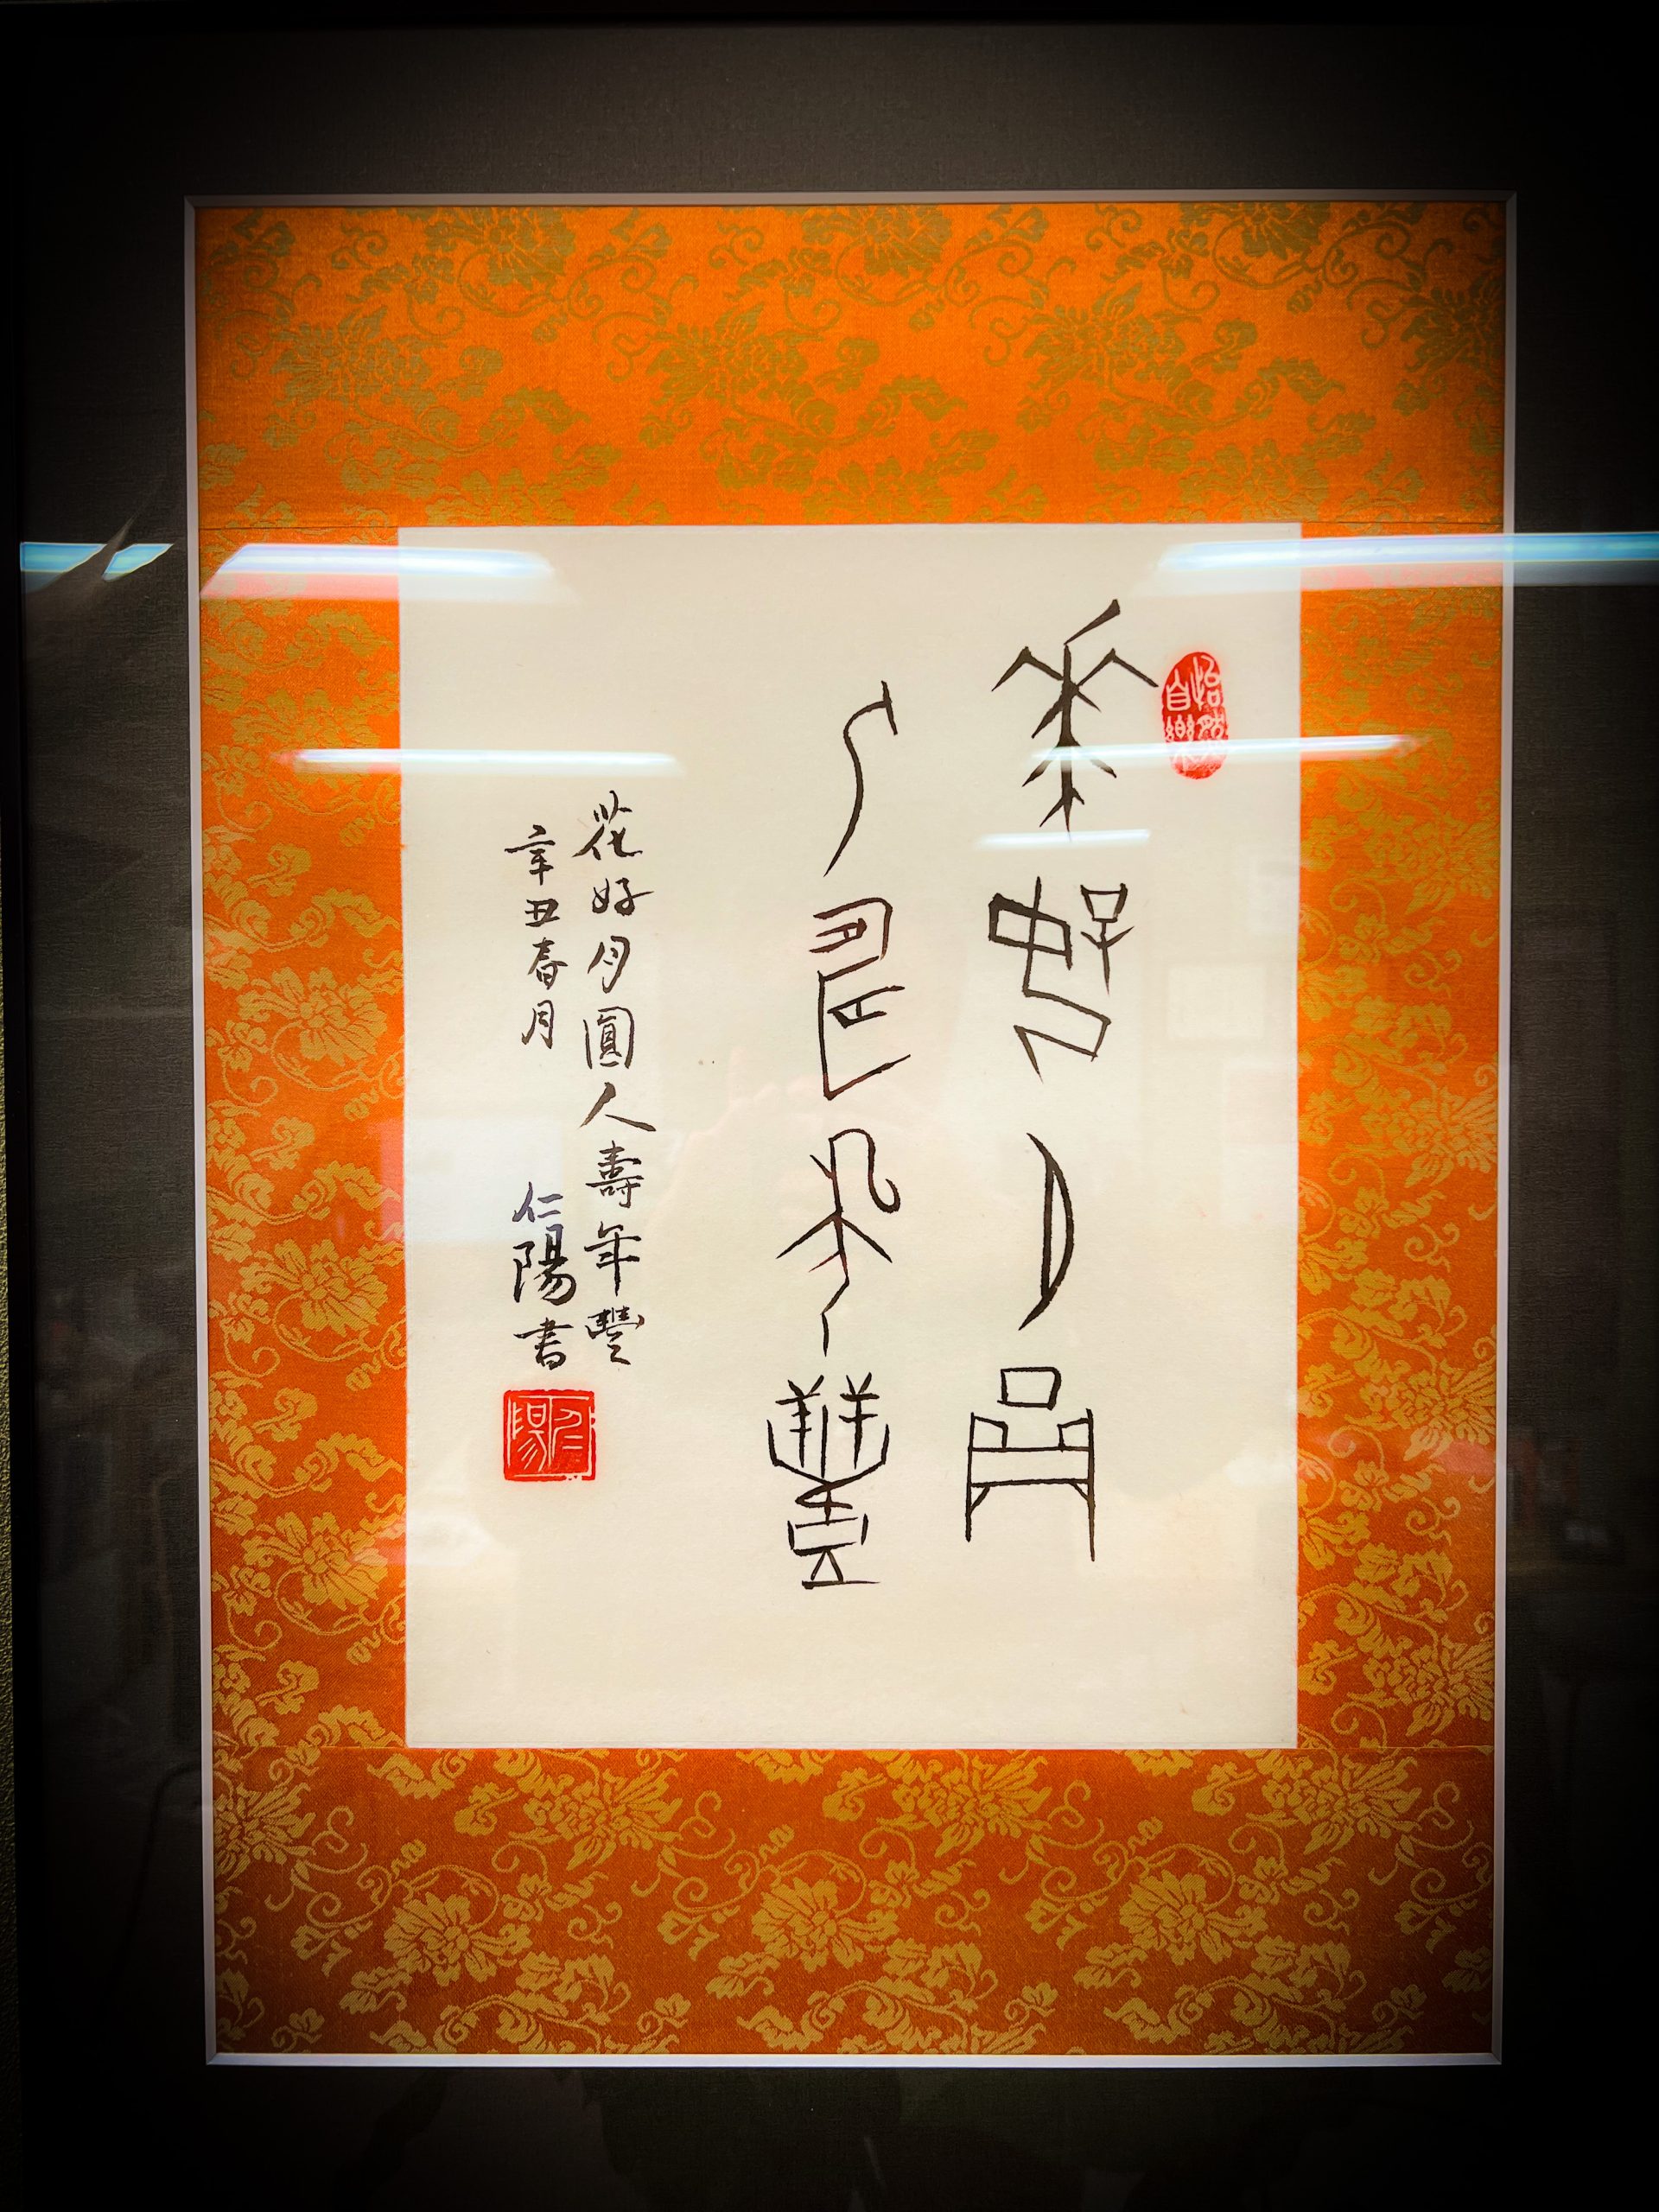 怡然自樂
花好月圓
人壽年豐
花好月圓人壽年豐
辛丑春月 仁陽書
仁陽